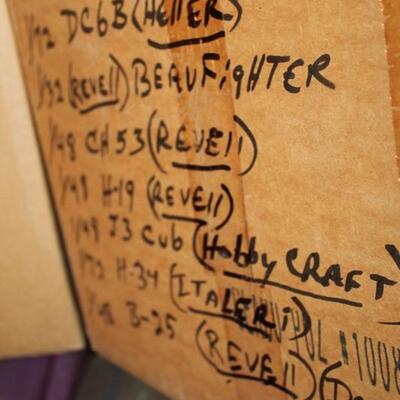 1/72 DC6B (HELLER)
1/32 (REVEll) BEAUFIGHTER
1/48 CH53 (REVEll)
1/48 H-19 (REVEll)
1/48 J3 Cub (HobbyCRAFT)
1/72 H-34 (ITALERi)
1/48 B-25 (REVEll)